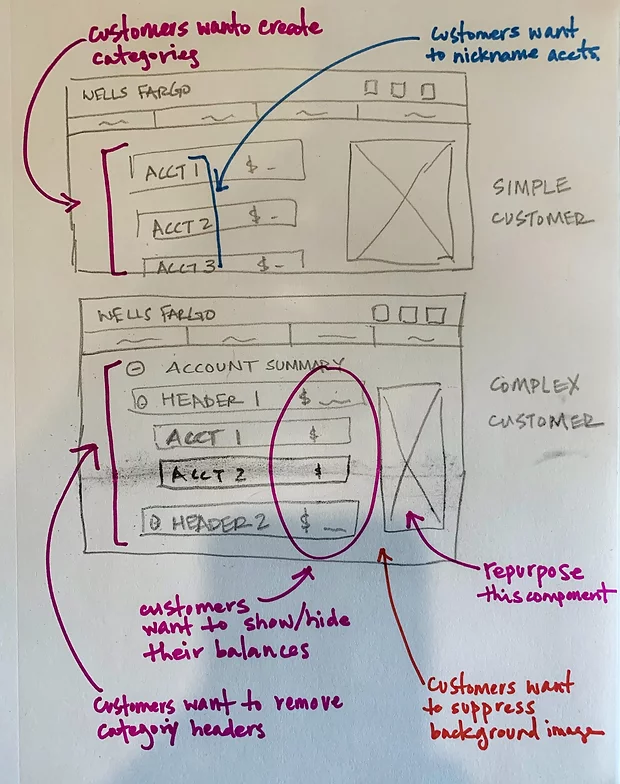 customers want to create
categories
customers want
to nickname accts.
WELLS FARGO
ACCT 1 $ -
ACCT 2 $ -
ACCT 3 $ -
SIMPLE
CUSTOMER
WELLS FARGO
ACCOUNT SUMMARY
HEADER 1 $
ACCT 1 $
ACCT 2 $
HEADER 2 $
COMPLEX
CUSTOMER
repurpose
this component
customers
want to show/hide
their balances
customers want to remove
category headers
customers want
to suppress
background image